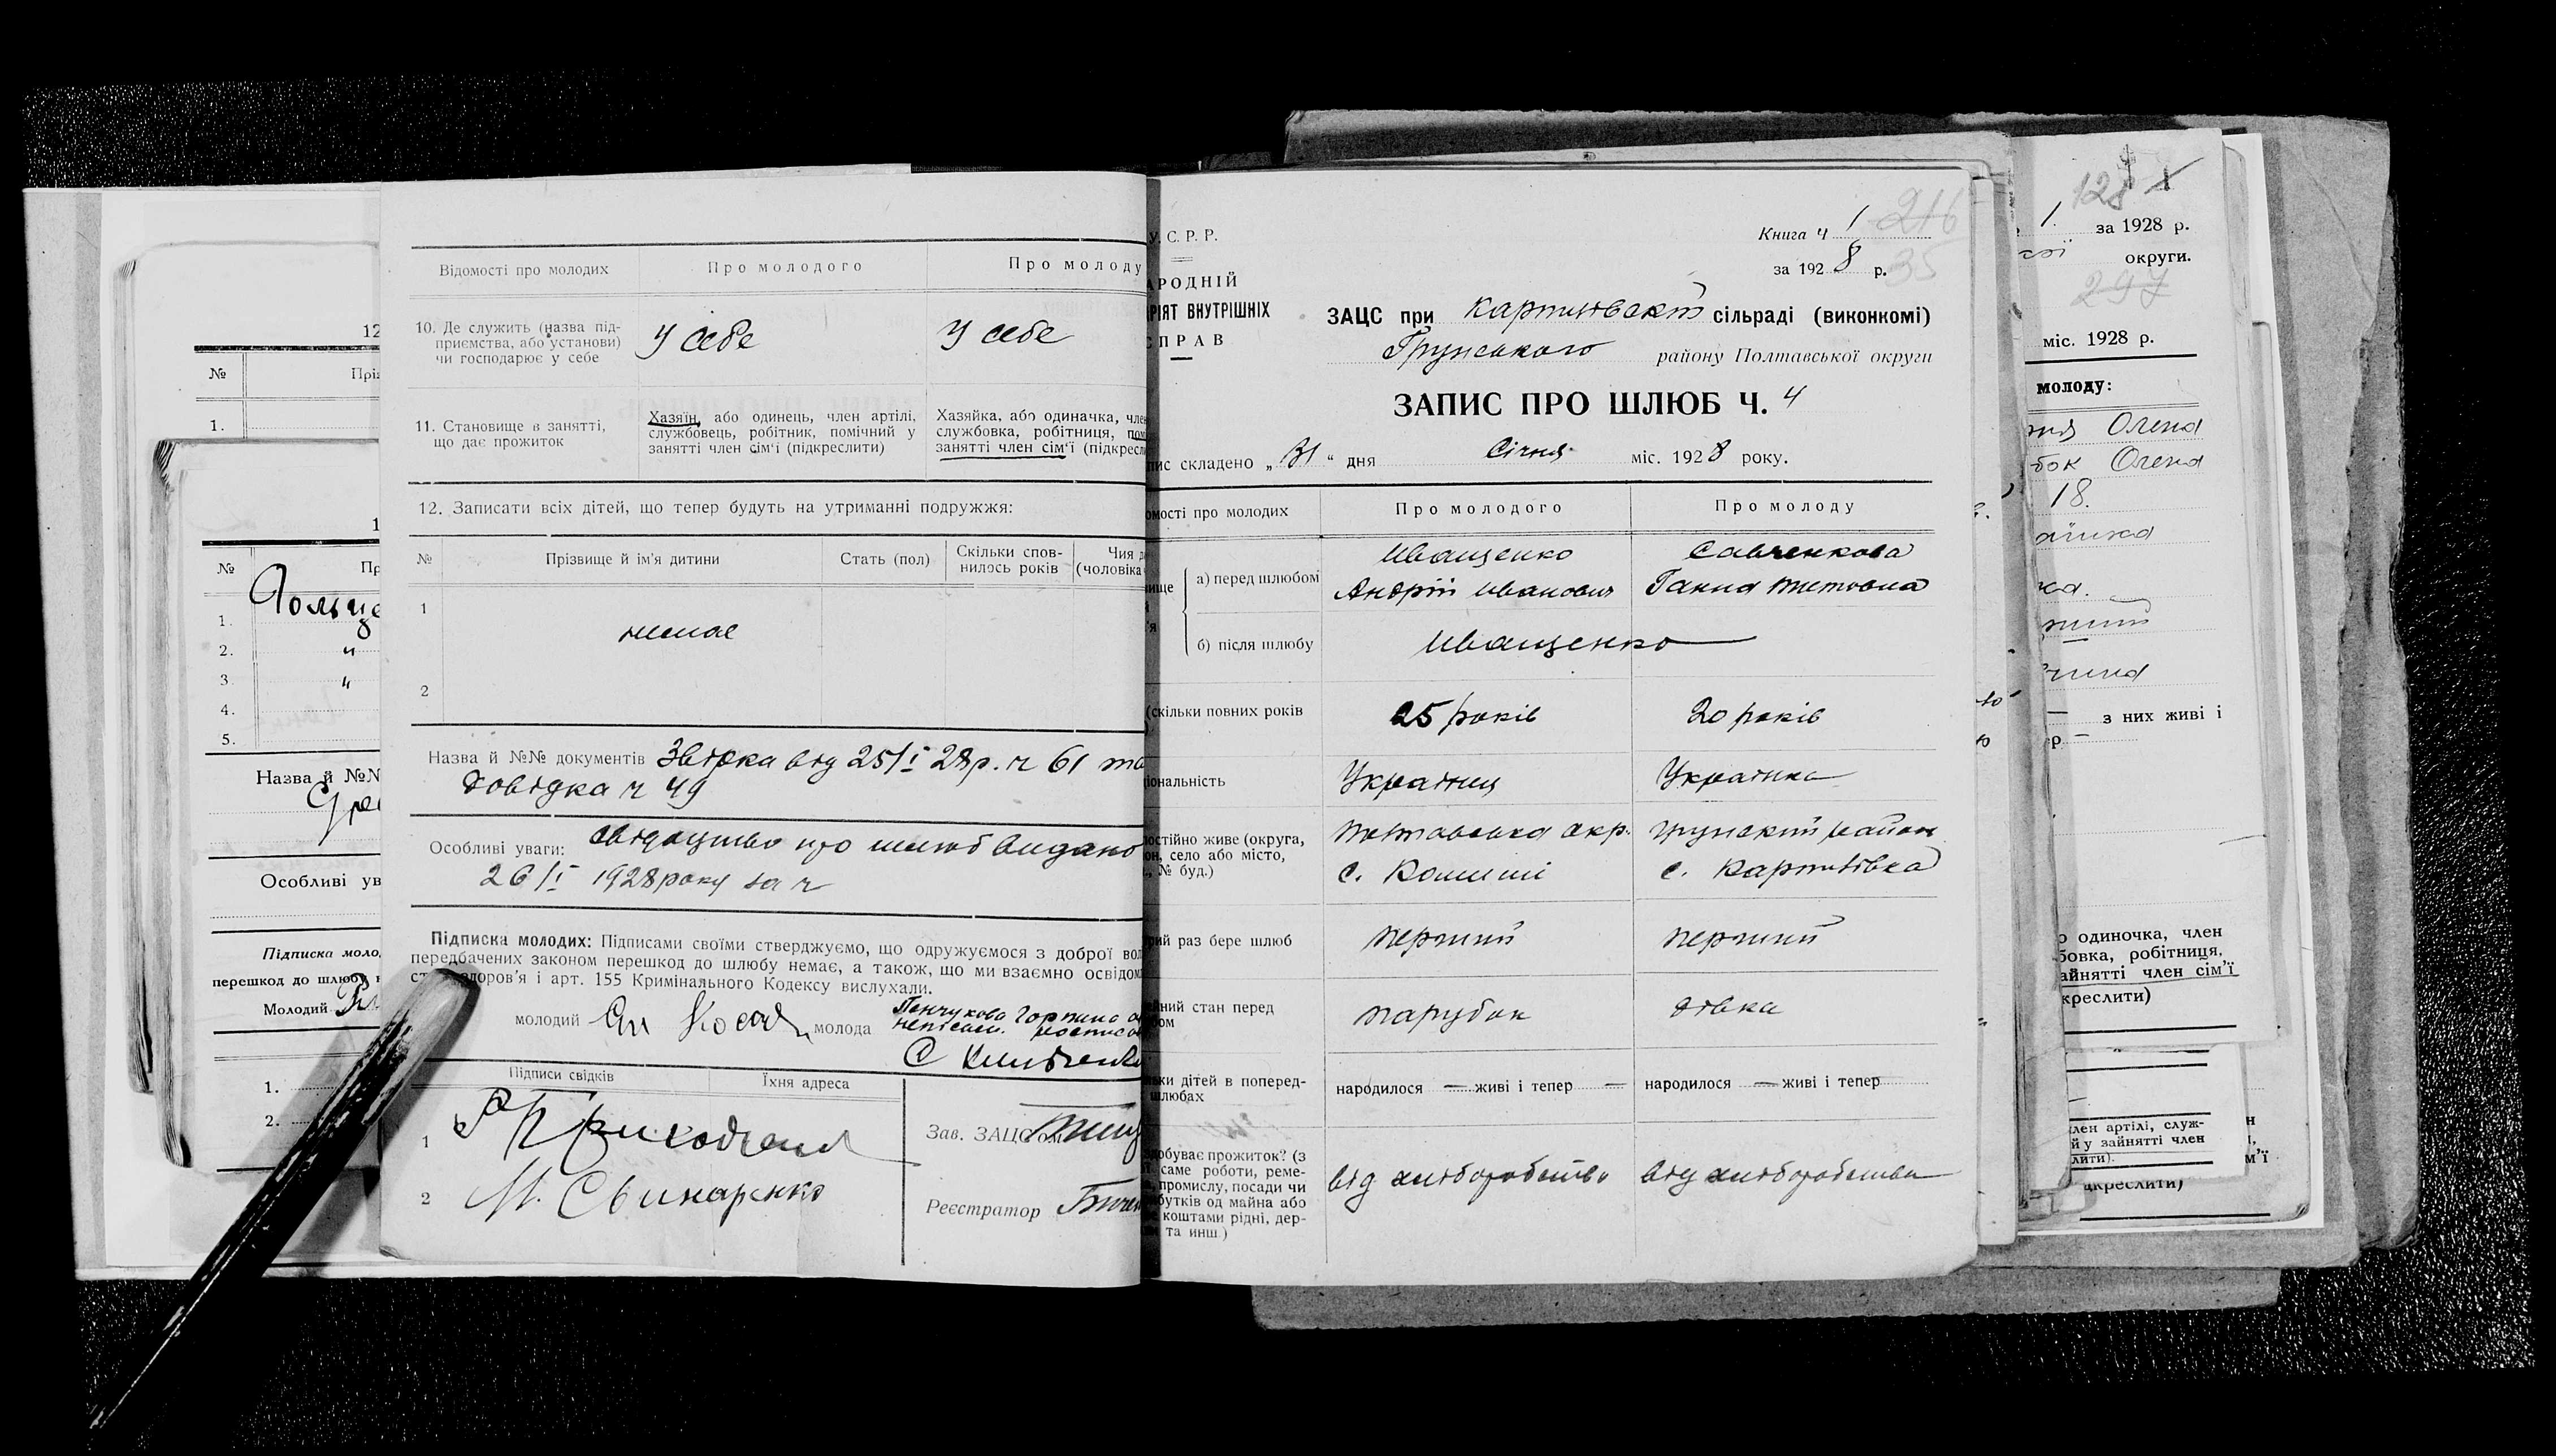 12
№ Пріз
1.
1
№ Пр
1. Гольце
2. "
3. "
4.
5.
Назва й №№
Особливі ув
Підписка моло
перешкод до шлюбу н
Молодий
1.
2.
Відомості про молодих Про молодого Про молоду
10. Де служить (назва під-
приємства, або установи)
чи господарює у себе
у себе у себе
11. Становище в занятті,
що дає прожиток
Хазяїн, або одинець, член артілі,
службовець, робітник, помічний у
занятті член сім'ї (підкреслити)
Хазяйка, або одиначка, член
службовка, робітниця, пом
занятті член сім'ї (підкресл
12. Записати всіх дітей, що тепер будуть на утриманні подружжя:
№ Прізвище й ім'я дитини Стать (пол) Скільки спов-
нилось років Чия д
(чоловіка
1
немає
2
Назва й №№ документів Звірка від 25/I 28р. ч 61 та
Довідка ч 49
Особливі уваги: свідоцтво про шлюб видано
26/I 1928 року за ч
Підписка молодих: Підписами своїми стверджуємо, що одружуємося з доброї вол
передбачених законом перешкод до шлюбу немає, а також, що ми взаємно освідом
ст доров'я і арт. 155 Кримінального Кодексу вислухали.
молодий молода Пенчукова Горпина
Підписи свідків Їхня адреса
1
2 М. Свинаренко
Зав. ЗАЦС'ом
Реєстратор
У. С. Р. Р.
АРОДНІЙ
РІЯТ ВНУТРІШНІХ
СПРАВ
Книга Ч 1 216
за 1928 р. 35
ЗАЦС при Карпилівскій сільраді (виконкомі)
Грунського району Полтавської округи
ЗАПИС ПРО ШЛЮБ Ч. 4
пис складено „31" дня Січня міс. 1928 року.
омості про молодих Про молодого Про молоду
вище
а) перед шлюбом
Иващенко Савченкова
Андрій Иванович Ганна Титовна
б) після шлюбу Иващенко
(скільки повних років 25 років 20 років
іональність Українец Українка
остійно живе (округа,
он, село або місто,
, № буд.)
Полтавська окр. Грунский район
с. Комиші с. Карпилівка
рий раз бере шлюб перший перший
ейний стан перед
бом
парубок дівка
ьки дітей в поперед-
шлюбах
народилося — живі і тепер — народилося — живі і тепер
добуває прожиток? (з
саме роботи, реме-
промислу, посади чи
бутків од майна або
коштами рідні, дер-
та инш.)
від хліборобства від хліборобства
128
1. за 1928 р.
округи.
297
міс. 1928 р.
молоду:
Олена
бок Олена
18.
з них живі і
р. —
о одиночка, член
бовка, робітниця,
айнятті член сім'ї
креслити)
лен артілі, служ-
й у зайнятті член
лити).
м'ї
дкреслити)